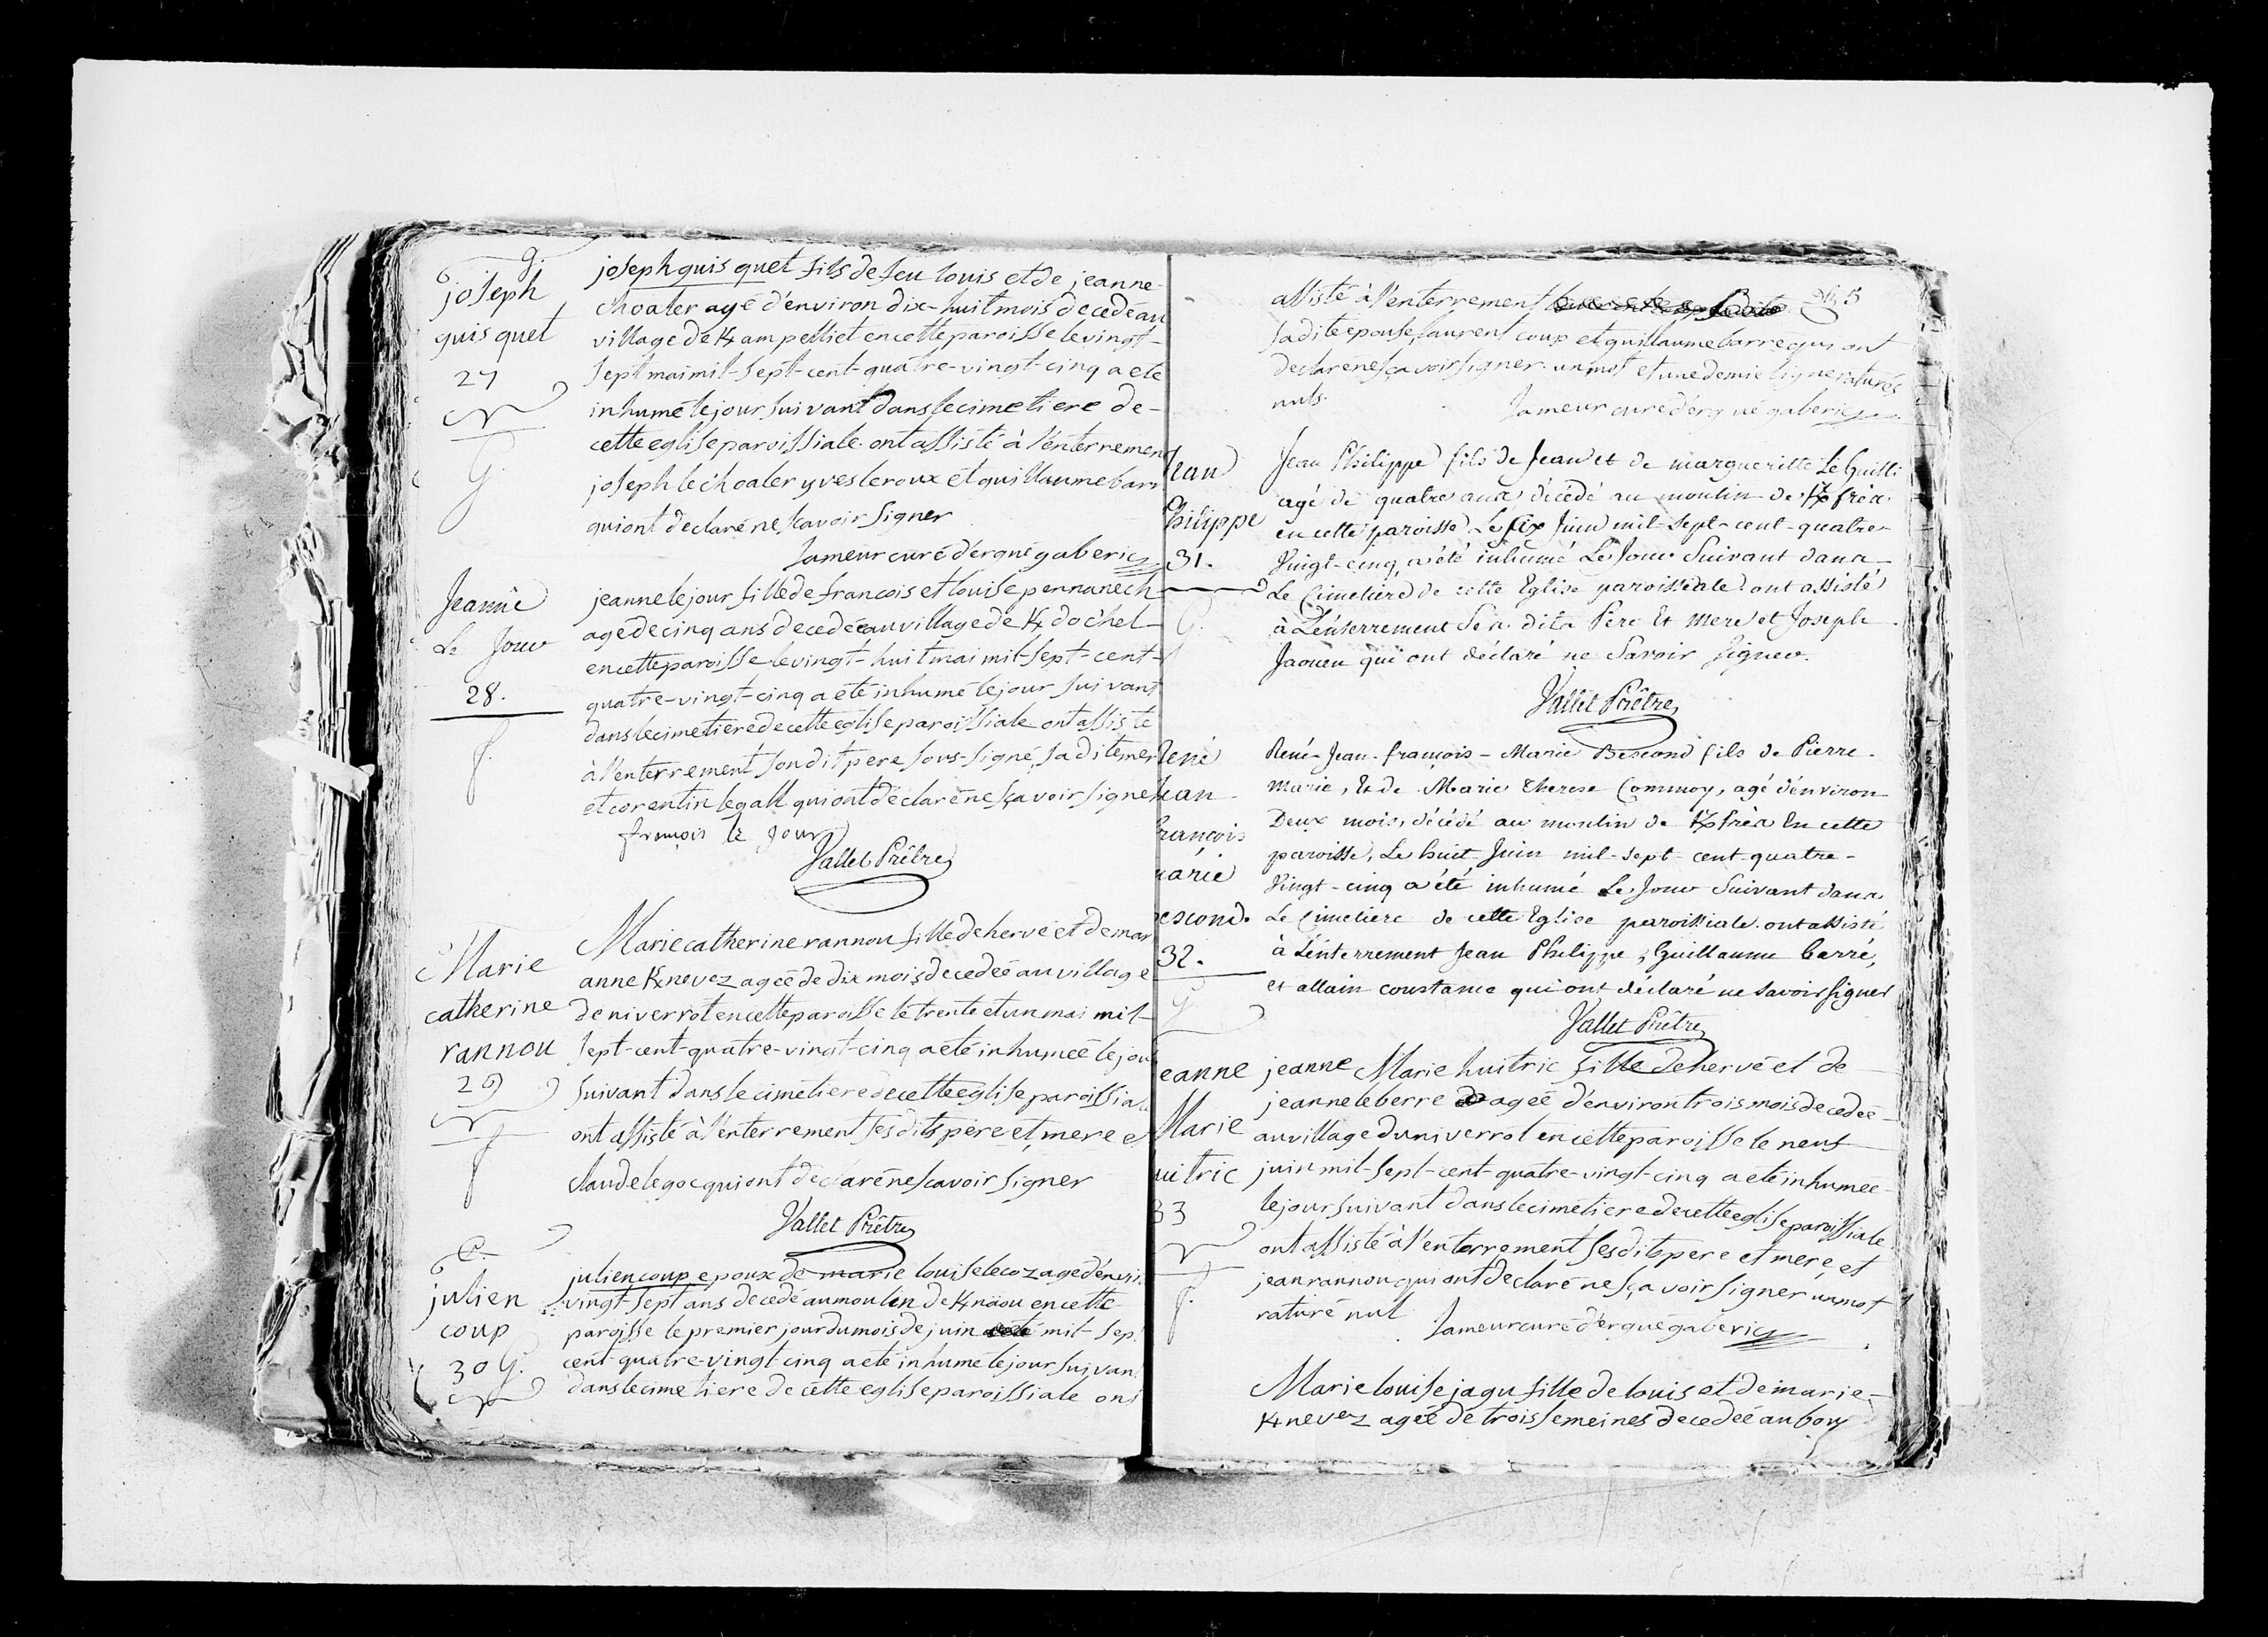 g.
joseph
guisquet
27
G
joseph guisquet fils de feu louis et de jeanne
choaler agé d'environ dix-huit mois decedé au
village de K/ampelliet en cette paroisse le vingt-
sept mai mil-sept-cent-quatre-vingt-cinq a eté
inhumé le jour suivant dans le cimetiere de-
cette eglise paroissiale. ont assisté à l'enterremen
joseph le choaler yves le roux et guillaume barr
qui ont declaré ne scavoir signer
Lameur curé d'ergué gaberic
Jeanne
Le Jour
28.
f.
jeanne le jour fille de francois et louise pennanech
agé de cinq ans decedée au village de K/dochel
en cette paroisse le vingt-huit mai mil-sept-cent-
quatre-vingt-cinq a eté inhumé le jour suivant
dans le cimetiere de cette eglise paroissiale ont assisté
à l'enterrement son dit pere sous-signé, sa dite mer
et corentin le gall qui ont déclaré ne sçavoir signer
françois le Jour
Vallet Prêtre
Marie
catherine
rannou
29
f
Marie catherine rannou fille de hervé et de mar
anne K/nevez ageé de dix mois decedeé au village
de niverrot en cette paroisse le trente et un mai mil-
sept-cent-quatre-vingt-cinq a eté inhumeé le jou
suivant dans le cimetiere de cette eglise paroissial
ont assisté à l'enterrement ses dits père et mere e
claude le goc qui ont declaré ne scavoir signer
Vallet Prêtre
C.
julien
coup
30 G.
julien coup epoux de marie louise le coz agé d'envi
vingt-sept ans decedé au moulin de K/näou en cette
paroisse le premier jour du mois de juin mil-sep
cent-quatre-vingt cinq a eté inhumé le jour suivan
dans le cimetiere de cette eglise paroissiale ont
5
assisté à l'enterrement
sa dite epouse, laurent coup et guillaume barré qui ont
declaré ne sçavoir signer. un mot et une demie ligne raturés
nuls.
Lameur curé d'ergué gaberic
Jean
Philippe
31.
G.
Jean Philippe fils de Jean et de margueritte Le Guilli
agé de quatre ans décédé au moulin de K/fréis
en cette paroisse Le six Juin mil-sept-cent-quatre-
Vingt-cinq, a été inhumé Le Jour Suivant dans
Le Cimetiere de cette Eglise paroissiale. ont assisté
à L'enterrement Ses dits Pere Et Mere et Joseph
Jaouen qui ont déclaré ne Savoir signer.
Vallet Prêtre
René
Jean
françois
marie
escond.
32.
G
René-Jean-françois-Marie Bescond fils de Pierre-
marie, Et de Marie Therese Commoy, agé d'environ
Deux mois, décédé au moulin de K/fréis En cette
paroisse, Le huit Juin mil-sept-cent-quatre-
Vingt-cinq a été inhumé Le Jour Suivant dans
Le Cimetiere de cette Eglise paroissiale. ont assisté
à L'enterrement Jean Philippe, Guillaume barré,
et allain constance qui ont déclaré ne savoir signer
Vallet Prêtre
eanne
Marie
uitric
33
f.
jeanne Marie huitric fille de hervé et de
jeanne le berre ageé d'environ trois mois decedeé
au village du niverrot en cette paroisse le neuf
juin mil-sept-cent-quatre-vingt-cinq a eté inhumeé
le jour suivant dans le cimetiere de cette eglise paroissiale
ont assisté à l'enterrement ses dits pere et mere et
jean rannou qui ont declaré ne sçavoir signer un mot
raturé nul
Lameur curé d'ergué gaberic
Marie louise jagu fille de louis et de marie-
K/nevez ageé de trois semeines decedeé au bourg